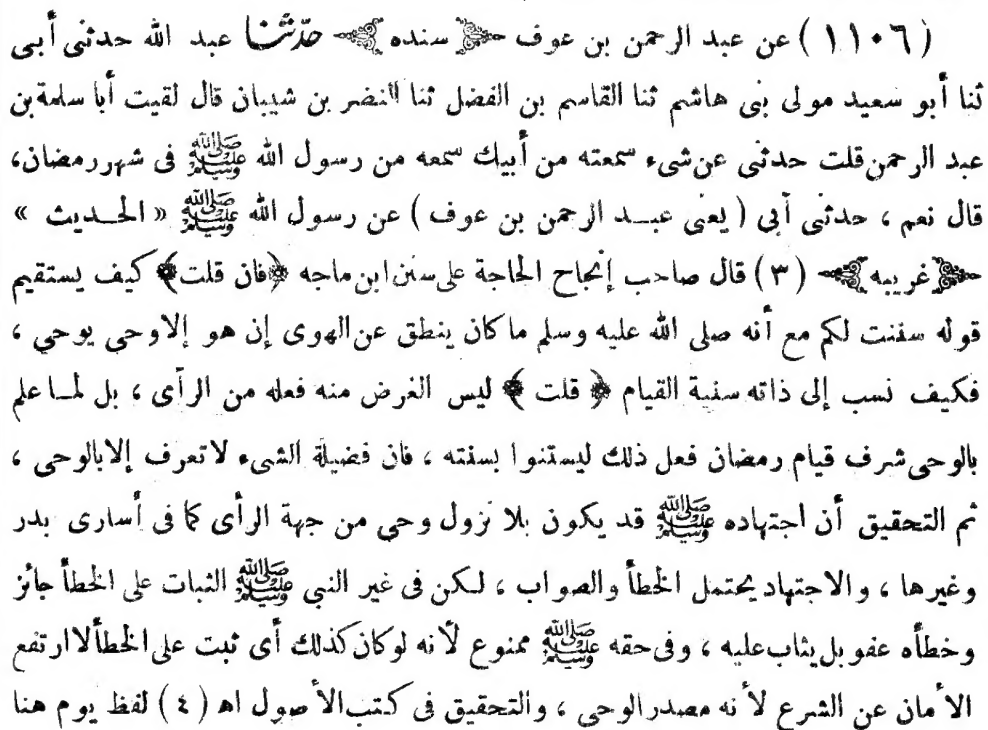 (١١٠٦) عن عبد الرحمن بن عوف ﴿سنده﴾ حدّثنا عبد الله حدثنى أبى
ثنا أبو سعيد مولى بنى هاشم ثنا القاسم بن الفضل ثنا النضر بن شيبان قال لقيت أبا سلمة بن
عبد الرحمن قلت حدثنى عن شىء سمعته من أبيك سمعه من رسول الله ﷺ فى شهر رمضان،
قال نعم ، حدثنى أبى ( يعنى عبد الرحمن بن عوف ) عن رسول الله ﷺ « الحديث »
﴿غريبه﴾ (٣) قال صاحب إنجاح الحاجة على سنن ابن ماجه ﴿فان قلت﴾ كيف يستقيم
قوله سننت لكم مع أنه صلى الله عليه وسلم ما كان ينطق عن الهوى إن هو إلا وحى يوحى ،
فكيف نسب إلى ذاته سنية القيام ﴿ قلت ﴾ ليس الغرض منه فعله من الرأى ، بل لما علم
بالوحى شرف قيام رمضان فعل ذلك ليستنوا بسنته ، فان فضيلة الشىء لا تعرف إلا بالوحى ،
ثم التحقيق أن اجتهاده ﷺ قد يكون بلا نزول وحى من جهة الرأى كما فى أسارى بدر
وغيرها ، والاجتهاد يحتمل الخطأ والصواب ، لكن فى غير النبي ﷺ الثبات على الخطأ جائز
وخطأه عفو بل يثاب عليه ، وفى حقه ﷺ ممنوع لأنه لو كان كذلك أى ثبت على الخطأ لارتفع
الأمان عن الشرع لأنه مصدر الوحى ، والتحقيق فى كتب الأصول اهـ (٤) لفظ يوم هنا